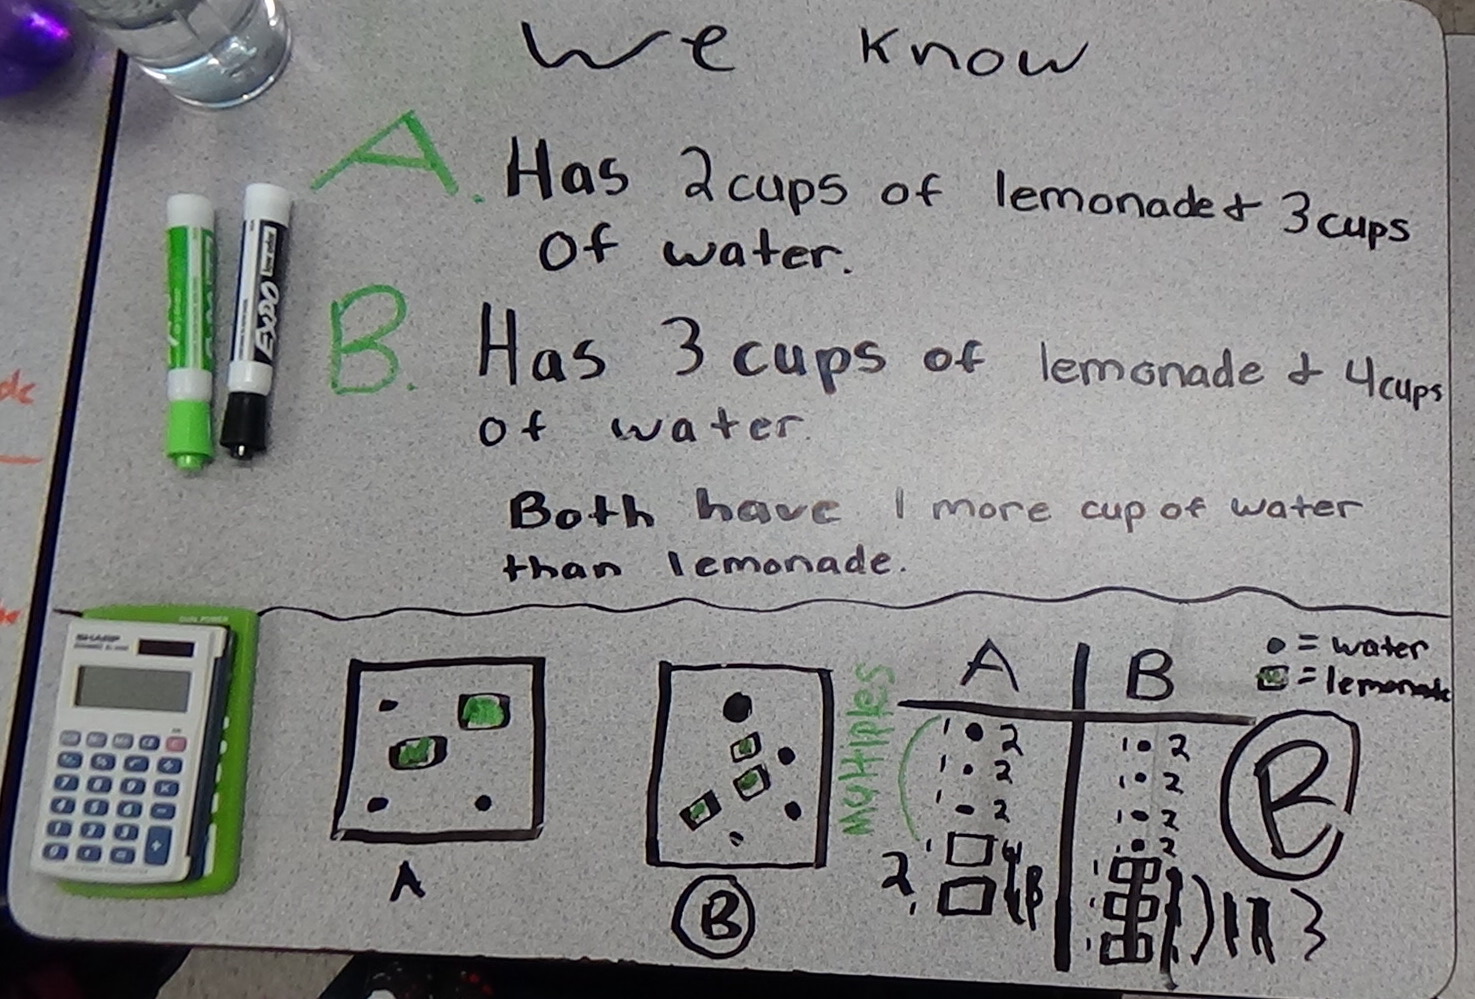 we know
A. Has 2 cups of lemonade & 3 cups
of water.
B. Has 3 cups of lemonade & 4 cups
of water.
Both have 1 more cup of water
than lemonade.
EXPO
SHARP
A
B
Multiples
A B
• = water
= lemonade
1 • 2 1 • 2
1 • 2 1 • 2
1 • 2 1 • 2
1 • 2
2
3
B